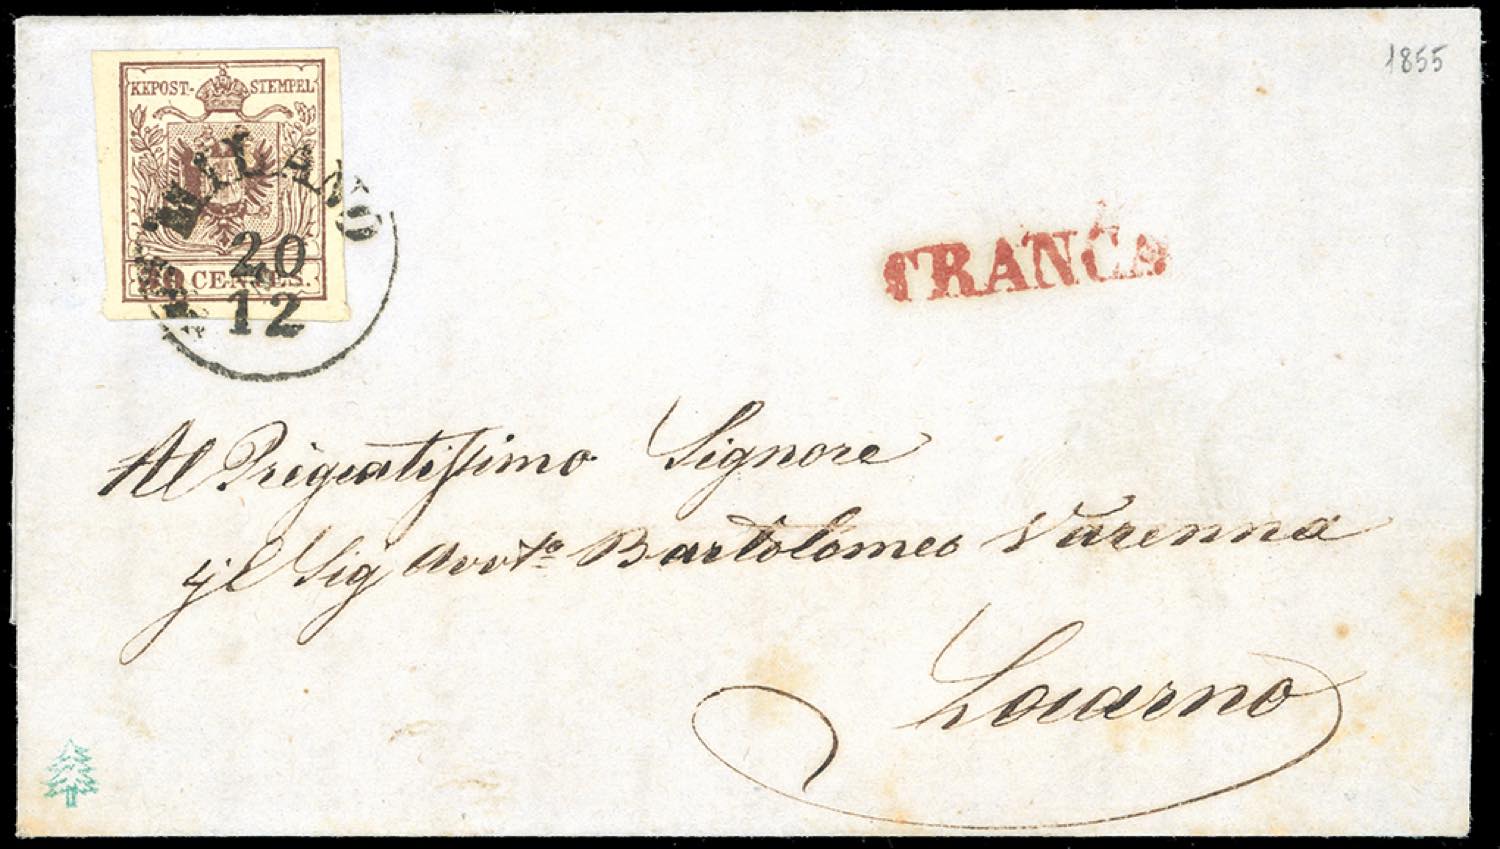 1855
KKPOST-STEMPEL
MILANO
20
12
CENTES.
FRANCA
Al Pregiatissimo Signore
Sig Avvto Bartolomeo Varenna
Locarno